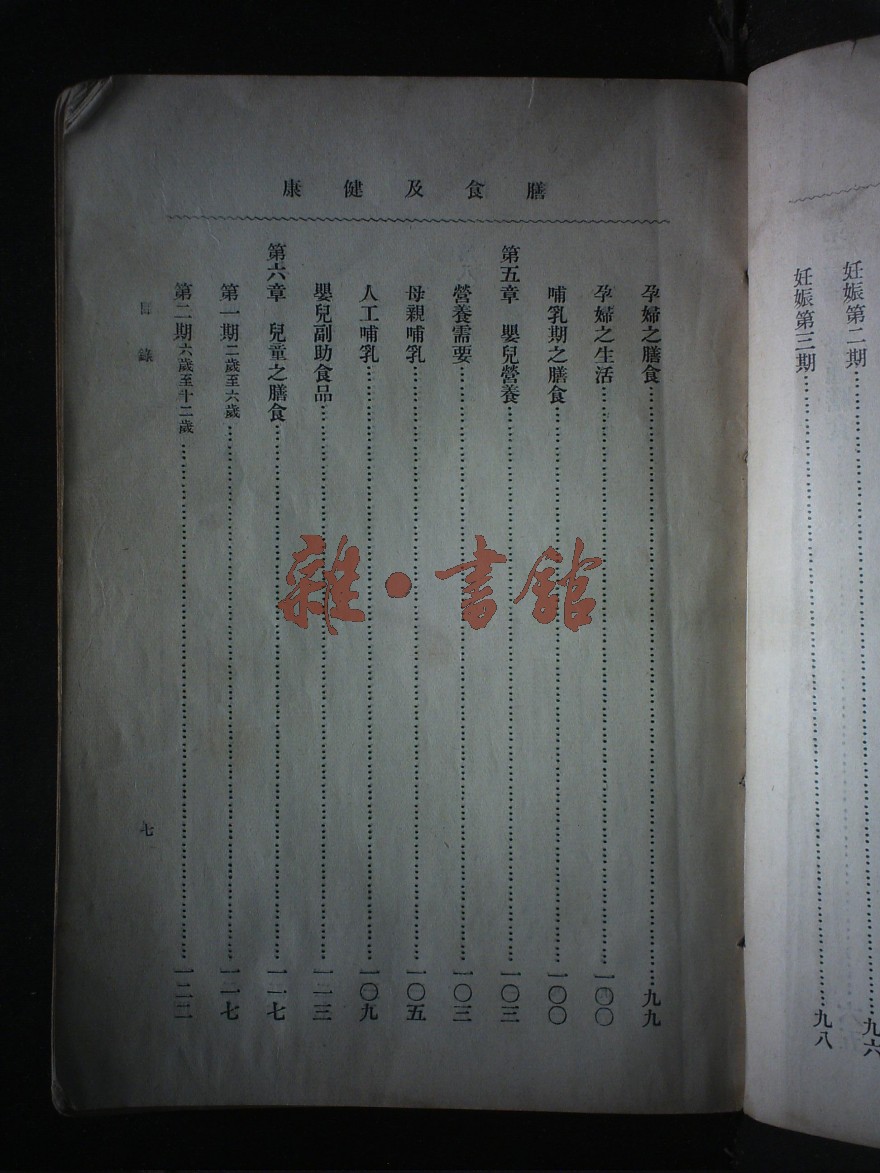 妊娠第二期……九六
妊娠第三期……九八
膳食及健康
孕婦之膳食……九九
孕婦之生活……一〇〇
哺乳期之膳食……一〇〇
第五章 嬰兒營養……一〇三
營養需要……一〇三
母親哺乳……一〇五
人工哺乳……一〇九
嬰兒副助食品……一一三
第六章 兒童之膳食……一一七
第一期二歲至六歲……一一七
第二期六歲至十二歲……一二二
目錄
七
雜·書館